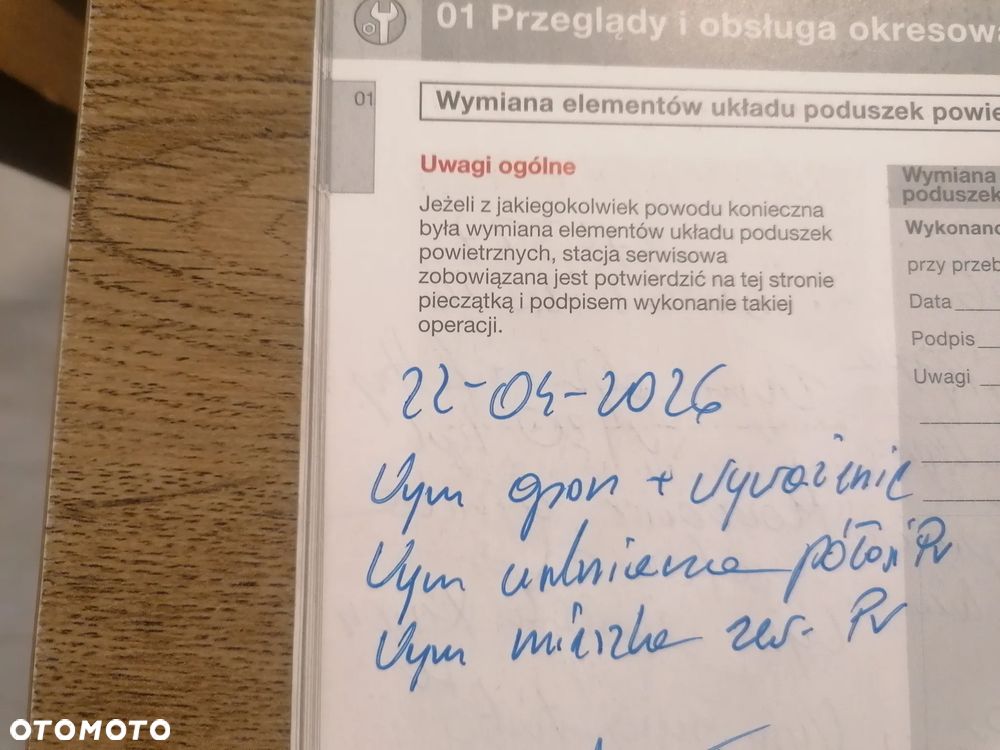 01 Przeglądy i obsługa okresowa
01
Wymiana elementów układu poduszek powie
Uwagi ogólne
Jeżeli z jakiegokolwiek powodu konieczna
była wymiana elementów układu poduszek
powietrznych, stacja serwisowa
zobowiązana jest potwierdzić na tej stronie
pieczątką i podpisem wykonanie takiej
operacji.
Wymiana
poduszek
Wykonano
przy przeb
Data
Podpis
Uwagi
22-04-2026
Wym opon + wyważenie
Wym półoś Pr
Wym mieszka zew. Pr
OTOMOTO